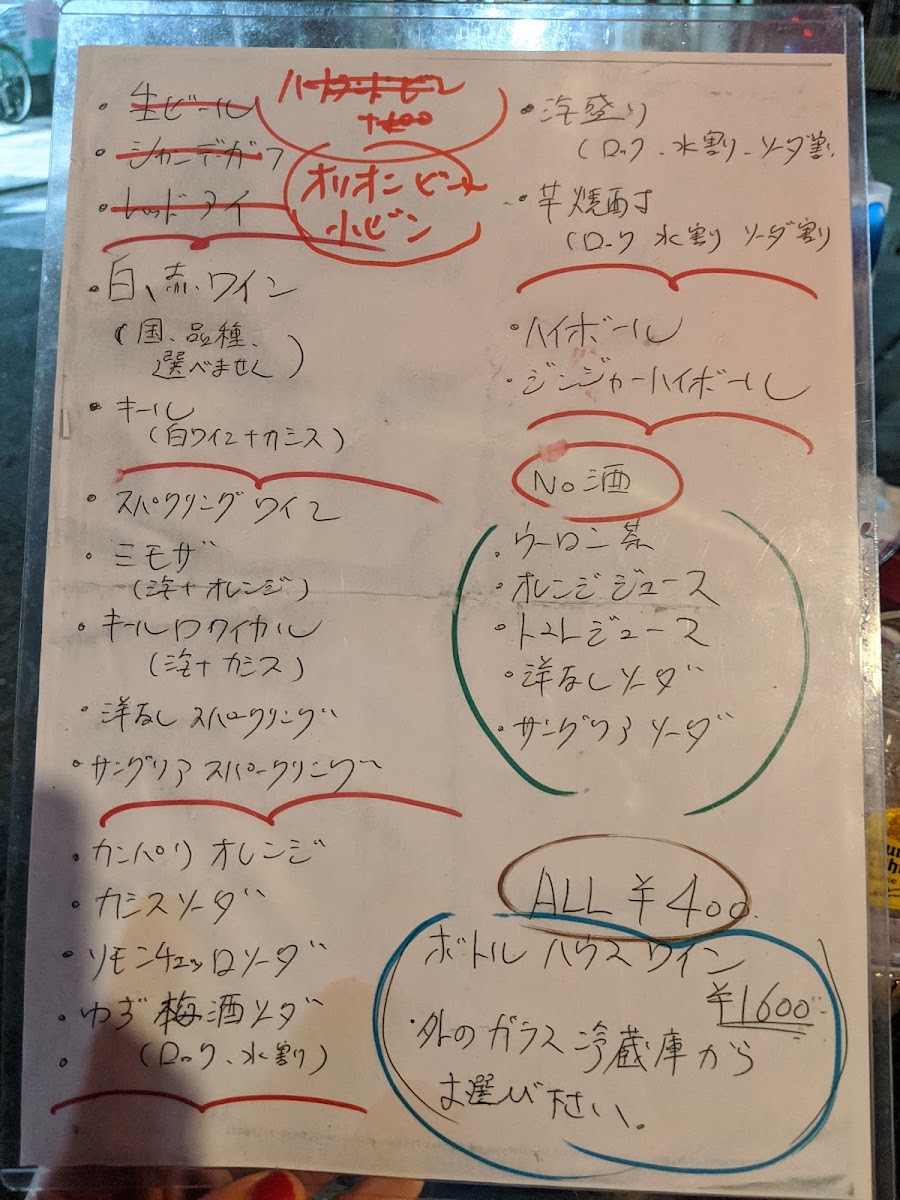 ・生ビール
・シャンデガフ
・レッドアイ
ハートランドビール
+¥00
オリオンビール
小ビン
・白、赤、ワイン
(国、品種、
選べません)
・キール
(白ワイン+カシス)
・スパクリングワイン
・ミモザ
(泡+オレンジ)
・キールロワイヤル
(泡+カシス)
・洋なしスパークリング
・サングリアスパークリング
・カンパリオレンジ
・カシスソーダ
・リモンチェッロソーダ
・ゆず梅酒ソーダ
・(ロック、水割)
・泡盛り
(ロック、水割、ソーダ割
・芋焼酎
(ロック 水割 ソーダ割
・ハイボール
・ジンジャーハイボール
No酒
・ウーロン茶
・オレンジジュース
・トマトジュース
・洋なしソーダ
・サングリアソーダ
ALL ¥400
ボトルハウスワイン
¥1600
・外のガラス冷蔵庫から
お選び下さい。